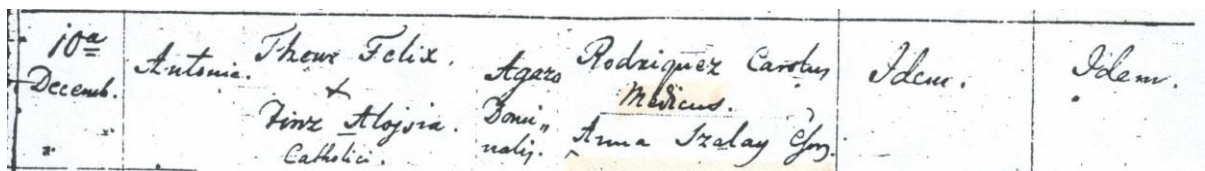 10a
Decemb.
Antonia.
Thowe Felix.
+
Tinz Alojsia.
Catholici.
Agazo
Domi„
nalis.
Rodriquez Carolus
Medicus.
Anna Szalay Cons.
Idem.
Idem.